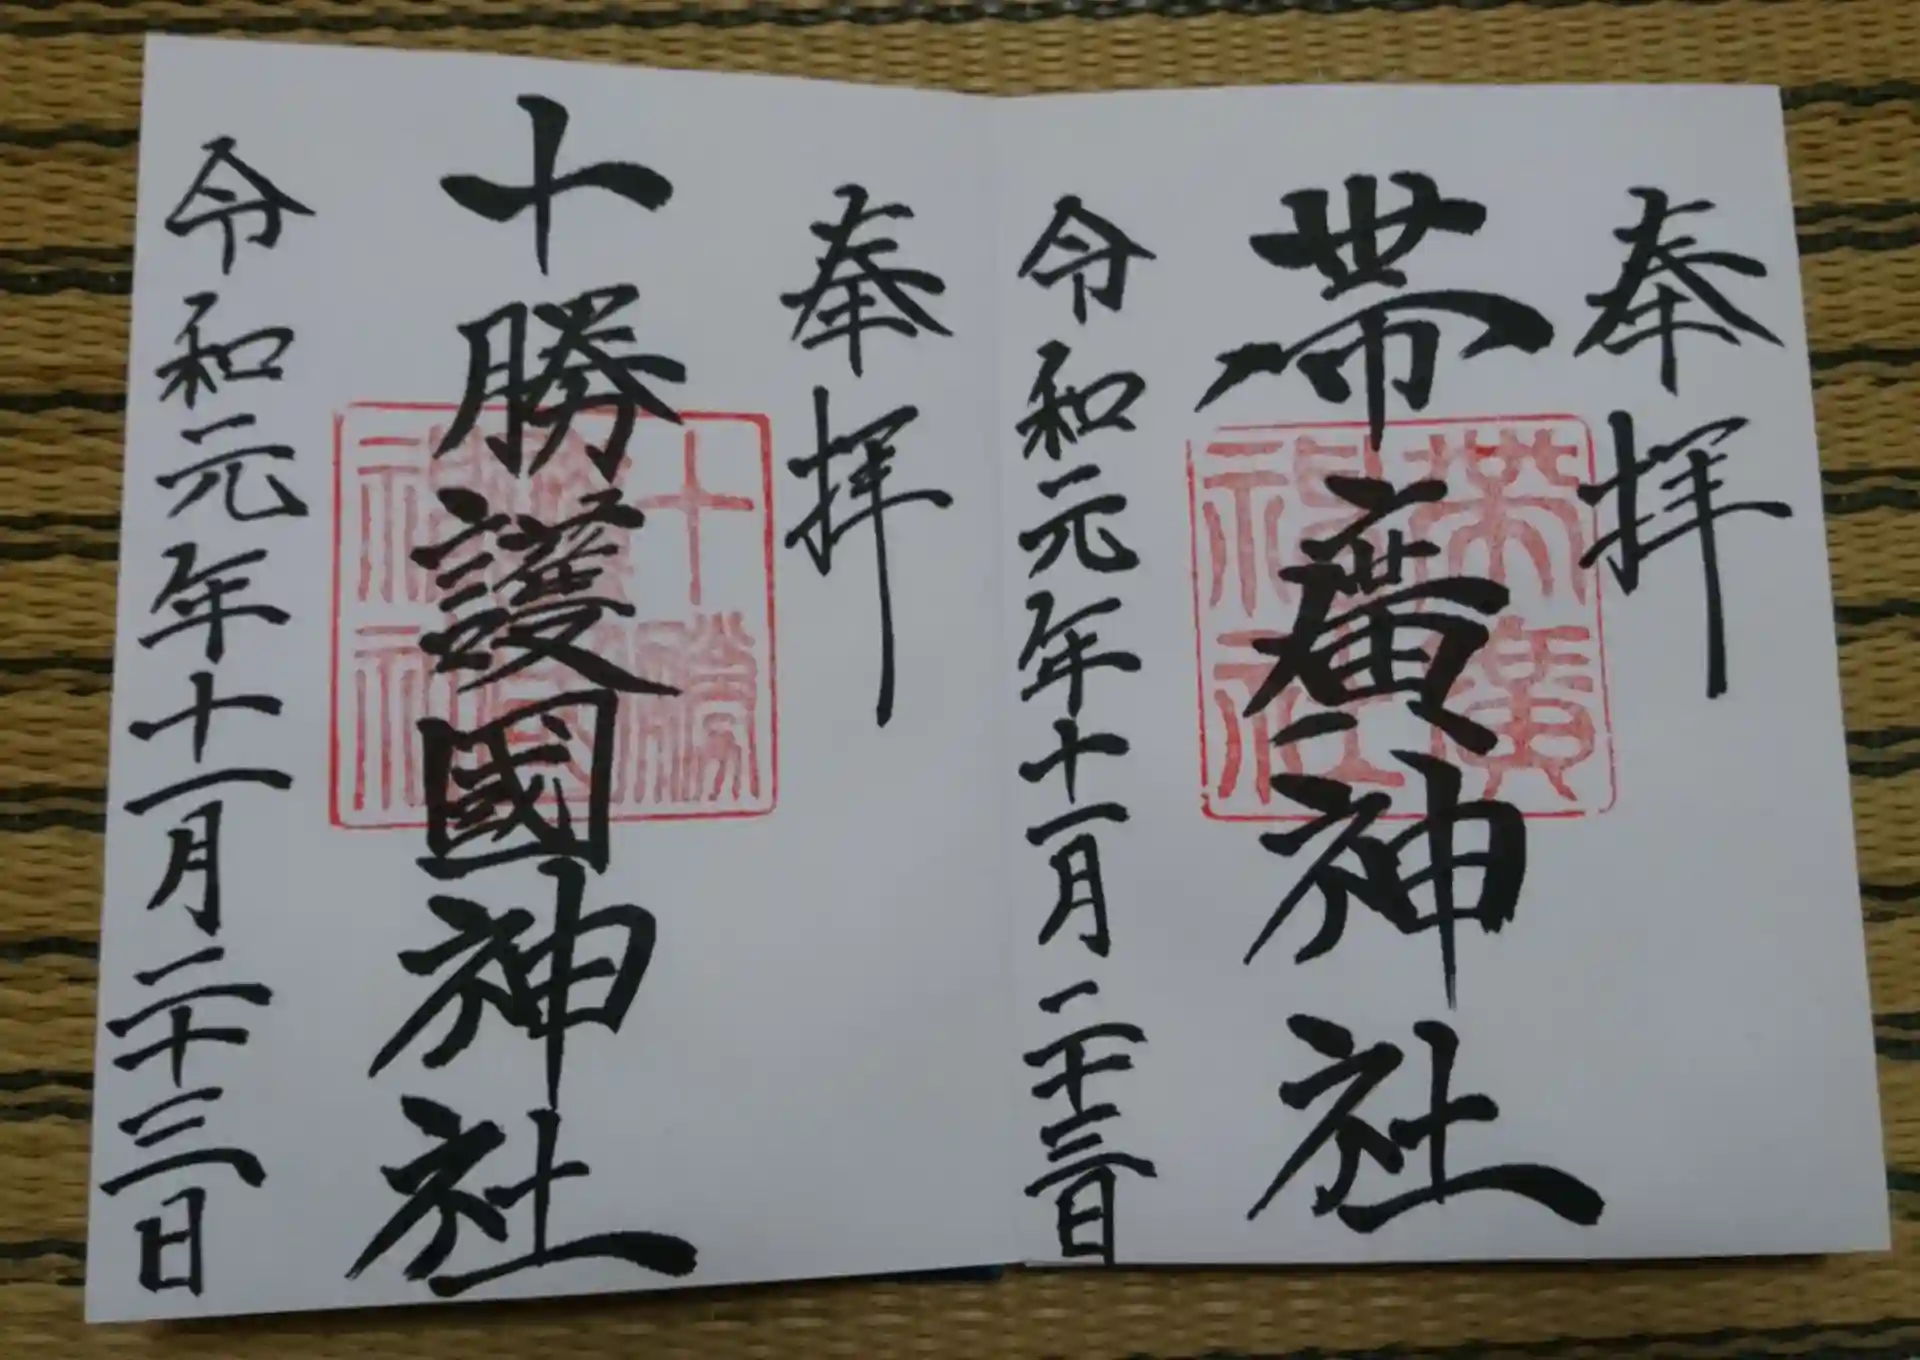 奉拝
帯廣神社
令和元年十一月二十三日
帯廣神社
奉拝
十勝護國神社
令和元年十一月二十三日
十勝護國神社